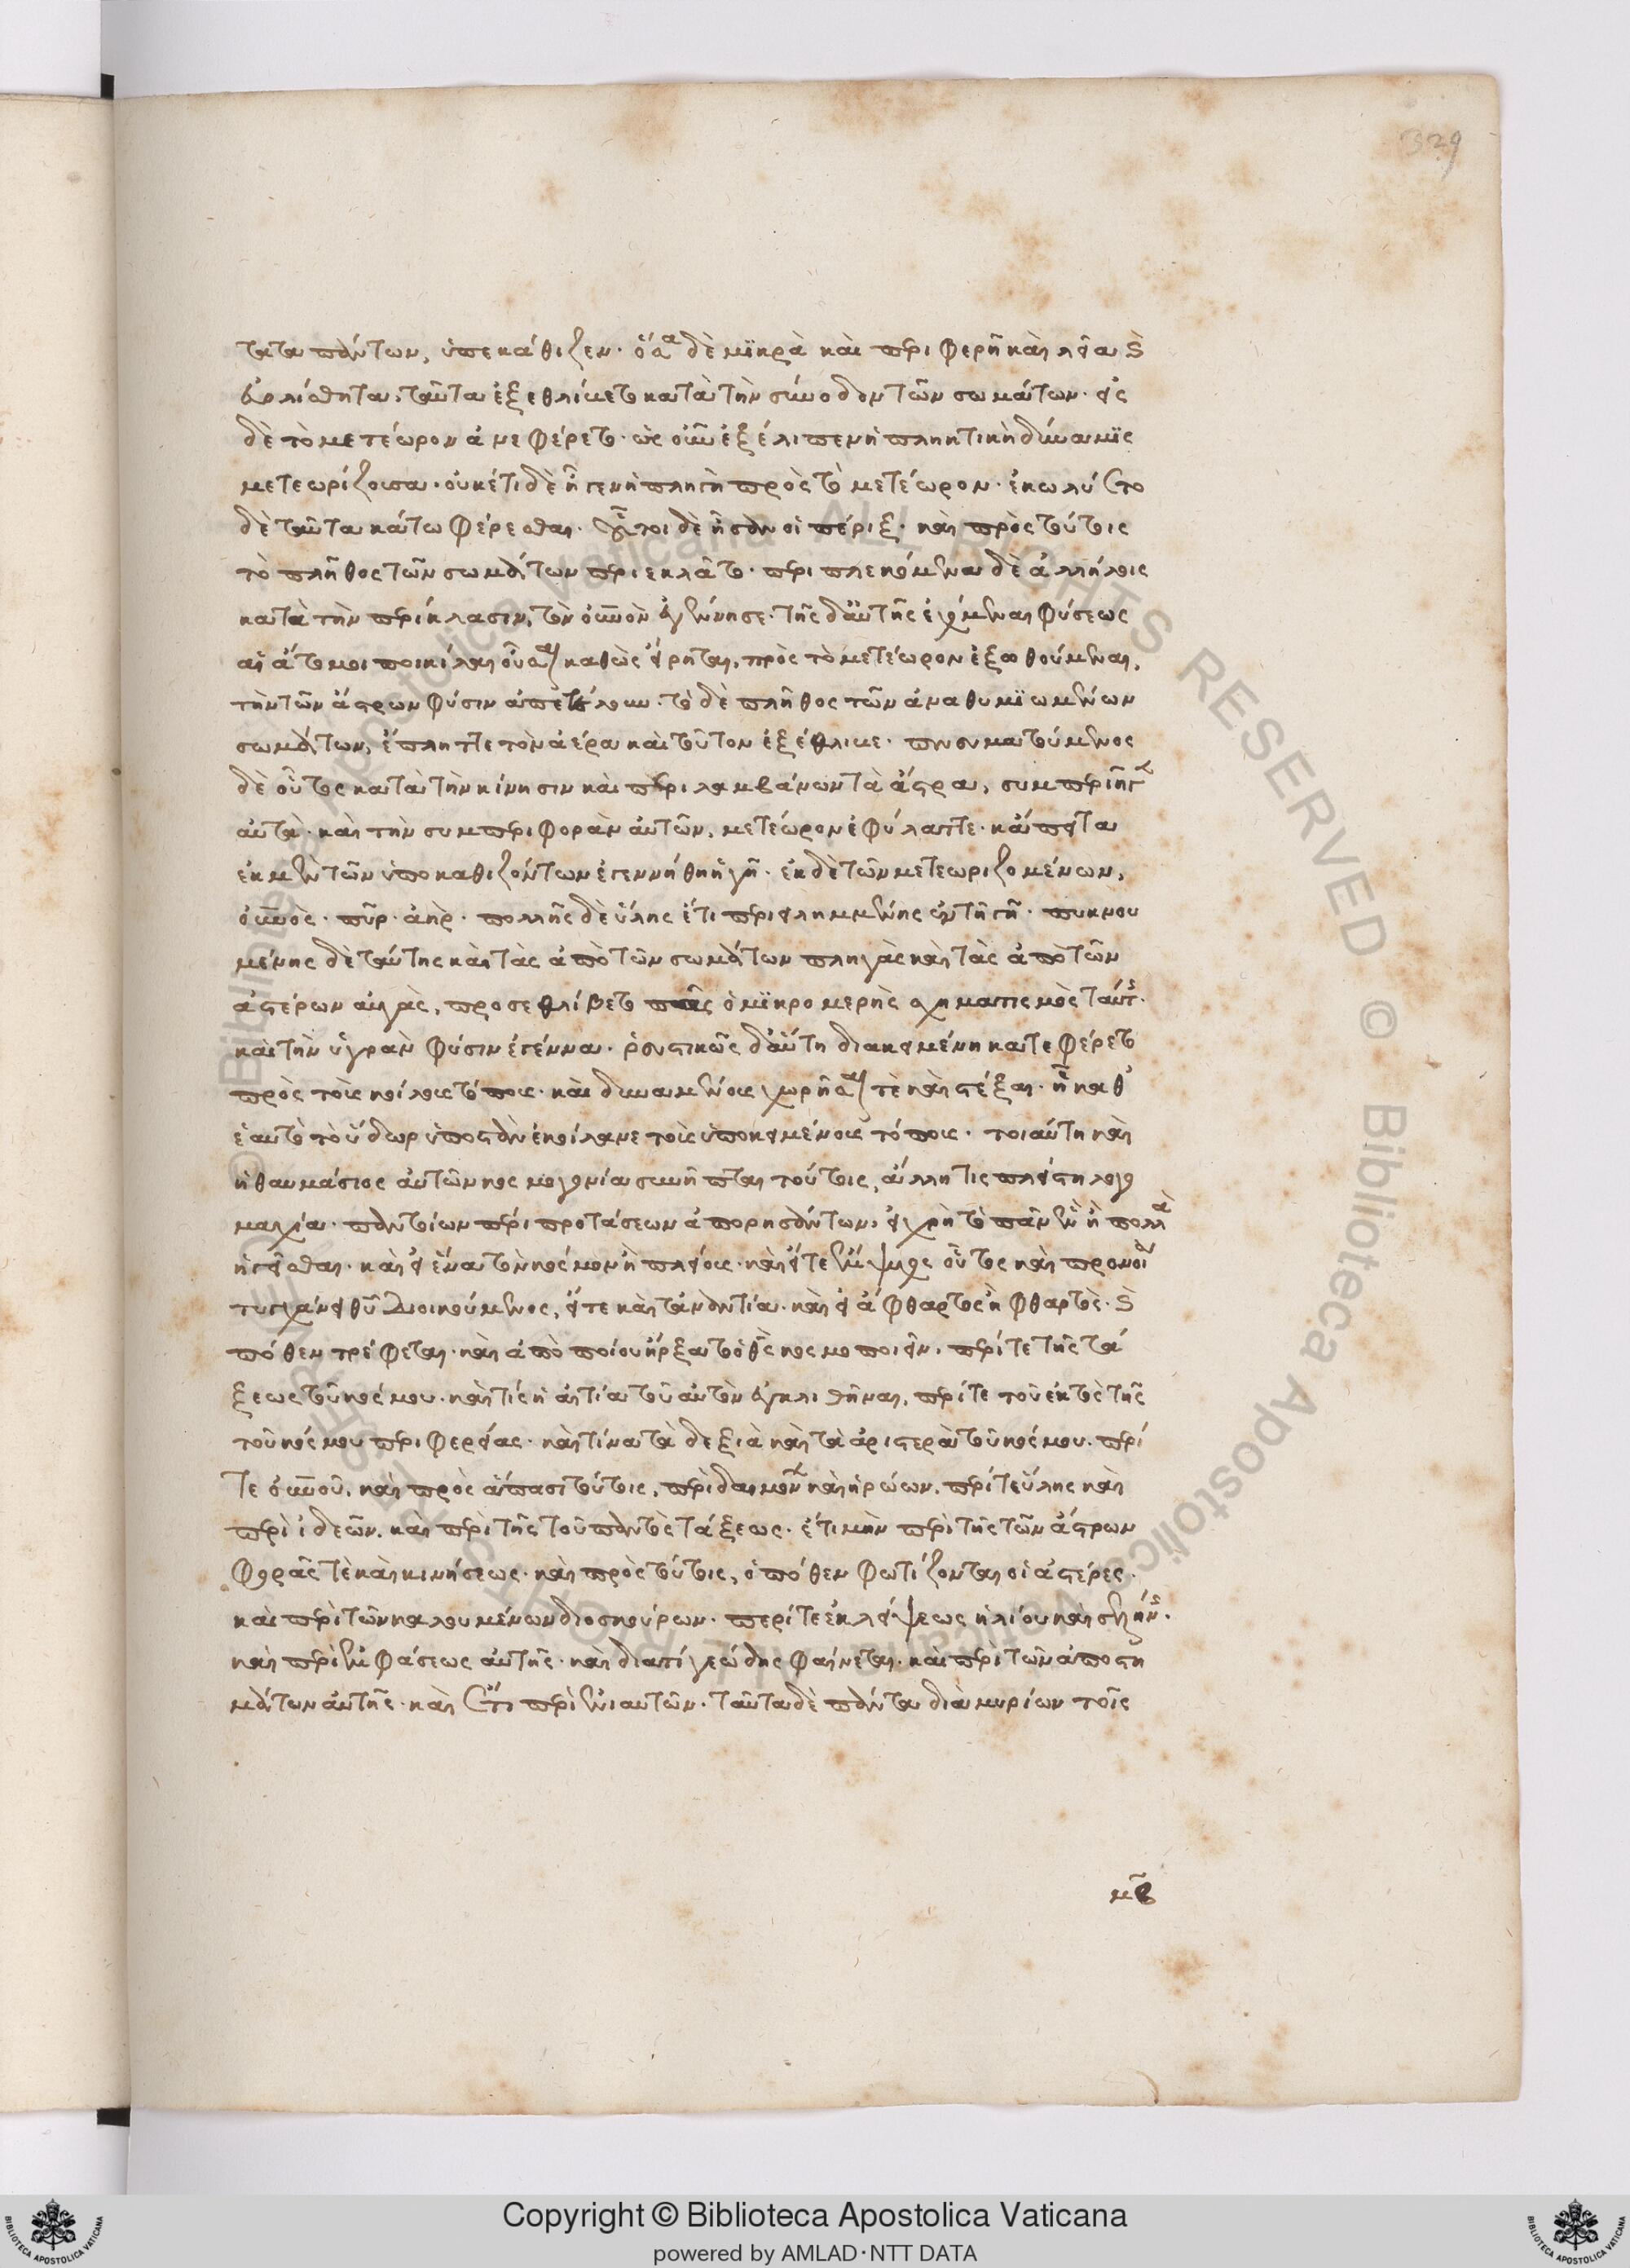 τατα πάντων, ὑπεκάθιζεν· ὅσα δὲ μϊκρὰ καὶ περιφερῆ καὶ λεῖα καὶ
εὐολίσθητα, ταῦτα ἐξεθλίβετο κατὰ τὴν σύνοδον τῶν σωμάτων· εἰς
δὲ τὸ μετέωρον ἀνεφέρετο· ὡς οὖν ἐξέλιπεν ἡ πληκτικὴ δύναμϊς
μετεωρίζουσα· οὐκέτι δὲ ἦγεν ἡ πληγὴ πρὸς τὸ μετέωρον· ἐκωλύετο
δὲ ταῦτα κάτω φέρεσθαι· οἱ πέριξ· καὶ πρὸς τούτοις
τὸ πλῆθος τῶν σωμάτων περιεκλᾶτο· περιπλεκόμενα δὲ ἀλλήλοις
κατὰ τὴν περίκλασιν, τὸν οὐνὸν ἐγέννησε· τῆς δ' αὐτῆς ἐχόμεναι φύσεως
αἱ ἄτομοι ποικίλαι οὖσαι καθὼς εἴρηται, πρὸς τὸ μετέωρον ἐξωθούμεναι,
τὴν τῶν ἄστρων φύσιν ἀπετέλουν· τὸ δὲ πλῆθος τῶν ἀναθυμϊωμένων
σωμάτων, ἔπληττε τὸν ἀέρα καὶ τοῦτον ἐξέθλιβε· πνευματούμενος
δὲ οὗτος κατὰ τὴν κίνησιν καὶ περιλαμβάνων τὰ ἄστρα, συμπεριῆγεν
αὐτὰ· καὶ τὴν συμπεριφορὰν αὐτῶν, μετέωρον ἐφύλαττε· κἄπειτα
ἐκ μὲν τῶν ὑποκαθιζόντων ἐγεννήθη ἡ γῆ· ἐκ δὲ τῶν μετεωριζομένων,
οὐνὸς· πῦρ· ἀὴρ· πολλῆς δὲ ὕλης ἔτι περιειλημμένης ἐν τῇ γῇ· πυκνου
μένης δὲ ταύτης καὶ τὰς ἀπὸ τῶν σωμάτων πληγὰς καὶ τὰς ἀπὸ τῶν
ἀστέρων αὐγὰς, προσεθλίβετο πᾶς ὁ μϊκρομερὴς σχηματισμὸς ταύτης·
καὶ τὴν ὑγρὰν φύσιν ἐγέννα· ῥευστικῶς δ' αὕτη διακειμένη κατεφέρετο
πρὸς τοὺς κοίλους τόπους· καὶ δυναμένους χωρῆσαι τὲ καὶ στέξαι· ἢ καθ'
ἑαυτὸ τὸ ὕδωρ ὑποστὰν ἐκοίλανε τοὺς ὑποκειμένους τόπους· τοιαύτη καὶ
ἡ θαυμάσιος αὐτῶν κοσμογονία συνῆπται τούτοις, ἄλλη τις πλείστη λογο
μαχία· παντοίων περὶ προτάσεων ἀπορησάντων, εἰ χρὴ τὸ πᾶν ἓν ἢ πολλὰ
ἡγεῖσθαι· καὶ εἰ ἕνα τὸν κόσμον ἢ πλείους· καὶ εἴτε ἔμψυχος οὗτος καὶ προνοίᾳ
τυγχάνει θεοῦ διοικούμενος, εἴτε καὶ τἀναντία· καὶ εἰ ἄφθαρτος ἢ φθαρτὸς· καὶ
πόθεν τρέφεται· καὶ ἀπὸ ποίου ἤρξατο ὁ θεὸς κοσμοποιεῖν· περί τε τῆς τά
ξεως τοῦ κόσμου· καὶ τίς ἡ αἰτία τοῦ αὐτὸν ἐγκλιθῆναι, περί τε τοῦ ἐκτὸς τῆς
τοῦ κόσμου περιφερείας· καὶ τίνα τὰ δεξιὰ καὶ τὰ ἀριστερὰ τοῦ κόσμου· περί
τε οὐνοῦ, καὶ πρὸς ἅπασι τούτοις, περὶ δαιμόνων καὶ ἡρώων· περί τε ὕλης καὶ
περὶ ἰδεῶν· καὶ περὶ τῆς τοῦ παντὸς τάξεως· ἔτι μὴν περὶ τῆς τῶν ἄστρων
φορᾶς τὲ καὶ κινήσεως· καὶ πρὸς τούτοις, ὁπόθεν φωτίζονται οἱ ἀστέρες·
καὶ περὶ τῶν καλουμένων διοσκούρων· περί τε ἐκλείψεως ἡλίου καὶ σελήνης·
καὶ περὶ ἐμφάσεως αὐτῆς· καὶ διατί γεώδης φαίνεται· καὶ περὶ τῶν ἀποστη
μάτων αὐτῆς· καὶ ἔτι περὶ ἐνιαυτῶν· ταῦτα δὲ πάντα διὰ μυρίων τοῖς
μβ
329
Copyright © Biblioteca Apostolica Vaticana
powered by AMLAD·NTT DATA